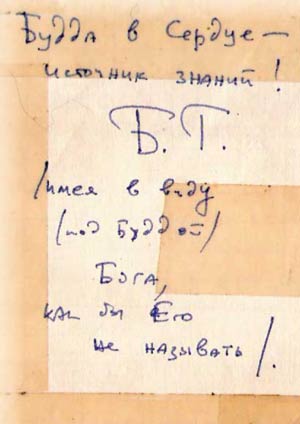 Будда в Сердце –
источник знаний!
Б. Г.
/имея в виду
(под Буддой)
Бога,
как бы Его
не называть/.